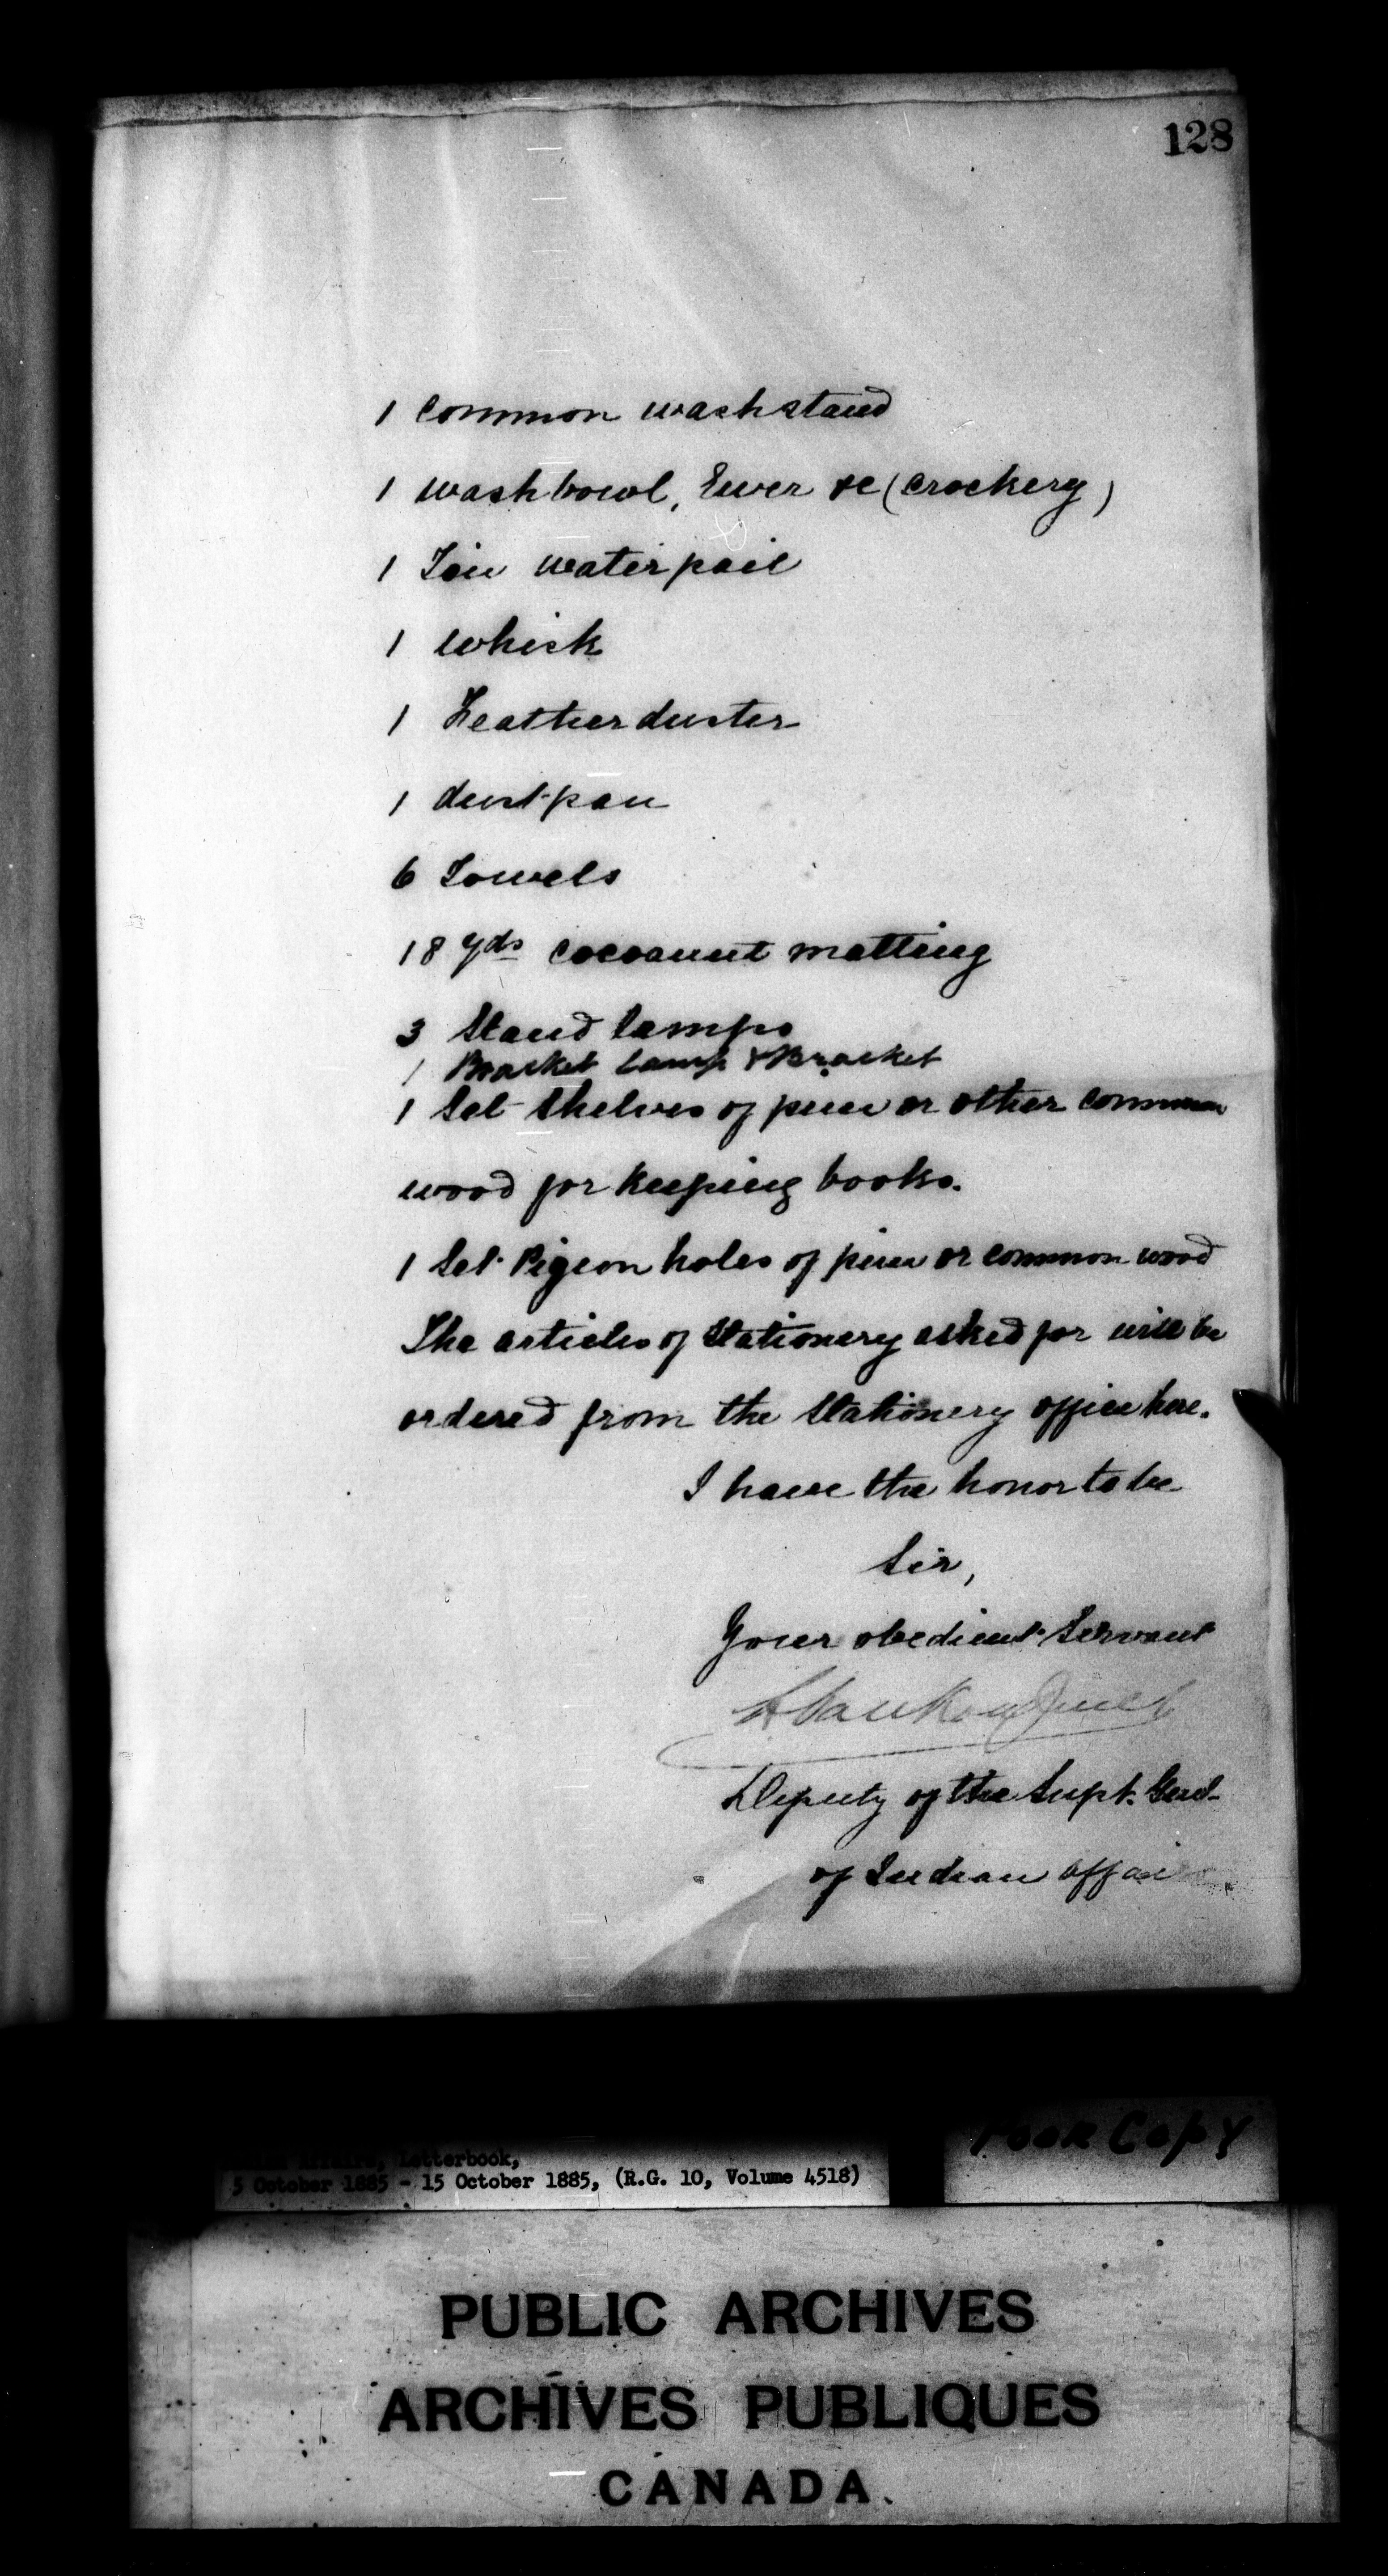 128
1 common washstand
1 wash bowl, Ewer &c (crockery)
1 Tin water pail
1 whisk
1 Feather duster
1 dust-pan
6 Towels
18 yds cocoanut matting
3 Stand lamps
1 Bracket Lamp & Bracket
1 Set Shelves of pine or other common
wood for keeping books.
1 Set Pigeon holes of pine or common wood
The articles of Stationery asked for will be
ordered from the Stationery office here.
I have the honor to be
Sir,
Your obedient Servant
L Vankoughnet
Deputy of the Supt. Genl.
of Indian Affai
Affairs, Letterbook,
5 October 1885 - 15 October 1885, (R.G. 10, Volume 4518)
Poor Copy
PUBLIC ARCHIVES
ARCHIVES PUBLIQUES
CANADA